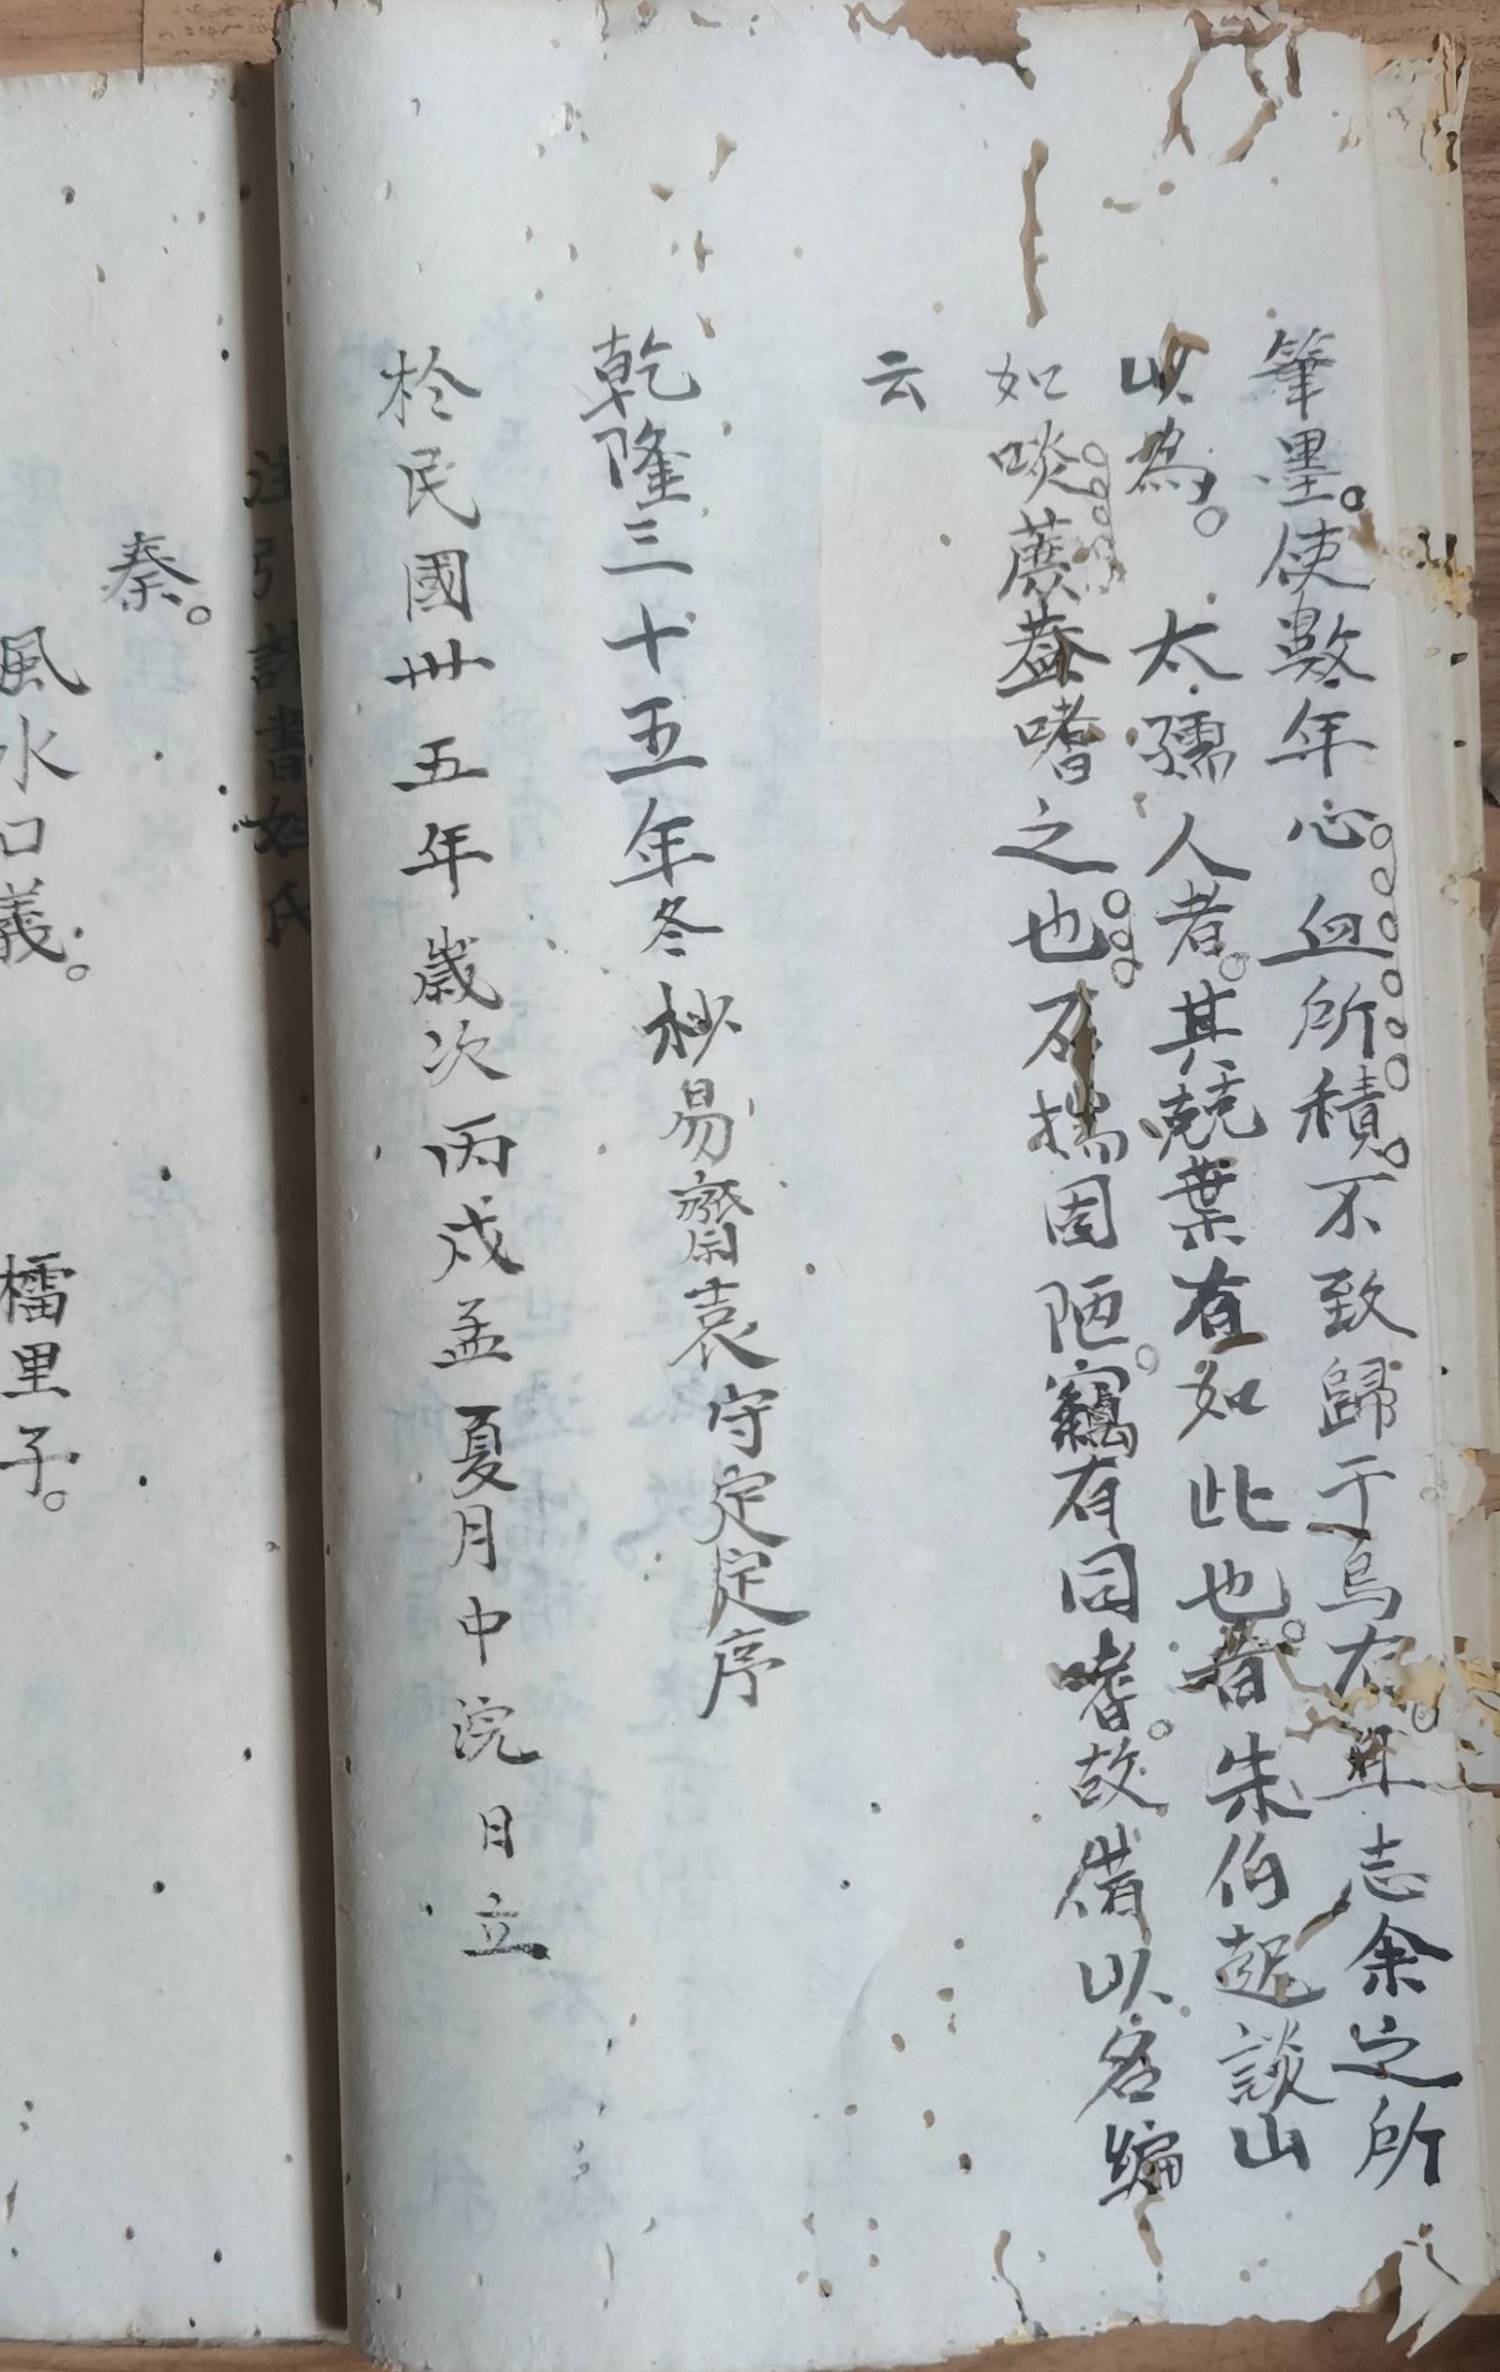 筆墨。使數年心血所積。不致歸于烏有。且志余之所
以為。太孺人者。其兢業有如此也。昔朱伯起談山
如啖蔗薑嗜之也。不揣固陋。竊有同嗜。故借以名編
云
乾隆三十五年冬杪易齋袁守定定序
於民國卅五年歲次丙戌孟夏月中浣日立
書姓氏
秦。
風水口義。 檑里子。